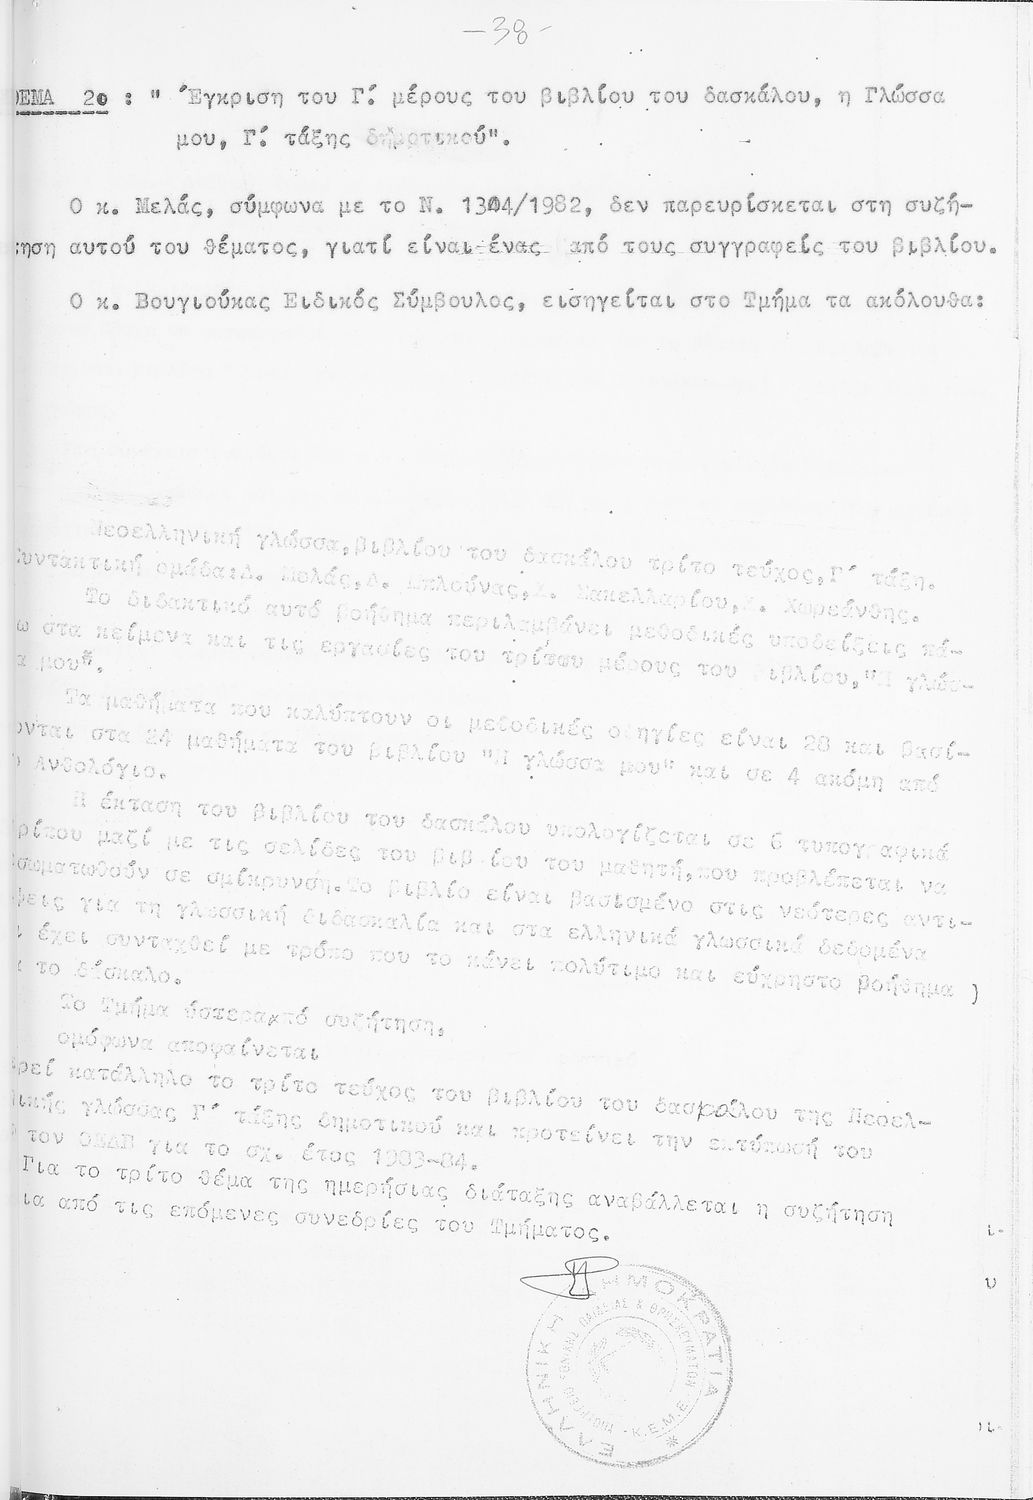 -38-
ΘΕΜΑ 2ο : " Έγκριση του Γ΄ μέρους του βιβλίου του δασκάλου, η Γλώσσα
μου, Γ΄ τάξης δημοτικού".
Ο κ. Μελάς, σύμφωνα με το Ν. 1304/1982, δεν παρευρίσκεται στη συζή-
τηση αυτού του θέματος, γιατί είναι ένας από τους συγγραφείς του βιβλίου.
Ο κ. Βουγιούκας Ειδικός Σύμβουλος, εισηγείται στο Τμήμα τα ακόλουθα:
Νεοελληνική γλώσσα,βιβλίου του δασκάλου τρίτο τεύχος,Γ΄ τάξη.
Συντακτική ομάδα:Δ. Μελάς,Δ. Μπλούνας,Σ. Σακελλαρίου,Χ. Χωρεάνθης.
Το διδακτικό αυτό βοήθημα περιλαμβάνει μεθοδικές υποδείξεις πά-
ω στα κείμενα και τις εργασίες του τρίτου μέρους του βιβλίου,"Η γλώσ-
α μου".
Τα μαθήματα που καλύπτουν οι μεθοδικές οδηγίες είναι 28 και βασί-
ονται στα 24 μαθήματα του βιβλίου "Η γλώσσα μου" και σε 4 ακόμη από
Ανθολόγιο.
Η έκταση του βιβλίου του δασκάλου υπολογίζεται σε 6 τυπογραφικά
ρίπου μαζί με τις σελίδες του βιβ ίου του μαθητή,που προβλέπεται να
σωματωθούν σε σμίκρυνση.Το βιβλίο είναι βασισμένο στις νεότερες αντι-
ψεις για τη γλωσσική διδασκαλία και στα ελληνικά γλωσσικά δεδομένα
ι έχει συνταχθεί με τρόπο που το κάνει πολύτιμο και εύχρηστο βοήθημα )
α το δάσκαλο.
Το Τμήμα ύστερα από συζήτηση,
ομόφωνα αποφαίνεται
ρεί κατάλληλο το τρίτο τεύχος του βιβλίου του δασκάλου της Νεοελ-
νικής γλώσσας Γ΄ τάξης δημοτικού και προτείνει την εκτύπωσή του
τον ΟΕΔΒ για το σχ. έτος 1983-84.
Για το τρίτο θέμα της ημερήσιας διάταξης αναβάλλεται η συζήτηση
ια από τις επόμενες συνεδρίες του Τμήματος.
ι-
υ
ι-
ΕΛΛΗΝΙΚΗ ΔΗΜΟΚΡΑΤΙΑ *
ΥΠΟΥΡΓΕΙΟ ΕΘΝΙΚΗΣ ΠΑΙΔΕΙΑΣ & ΘΡΗΣΚΕΥΜΑΤΩΝ
Κ.Ε.Μ.Ε.